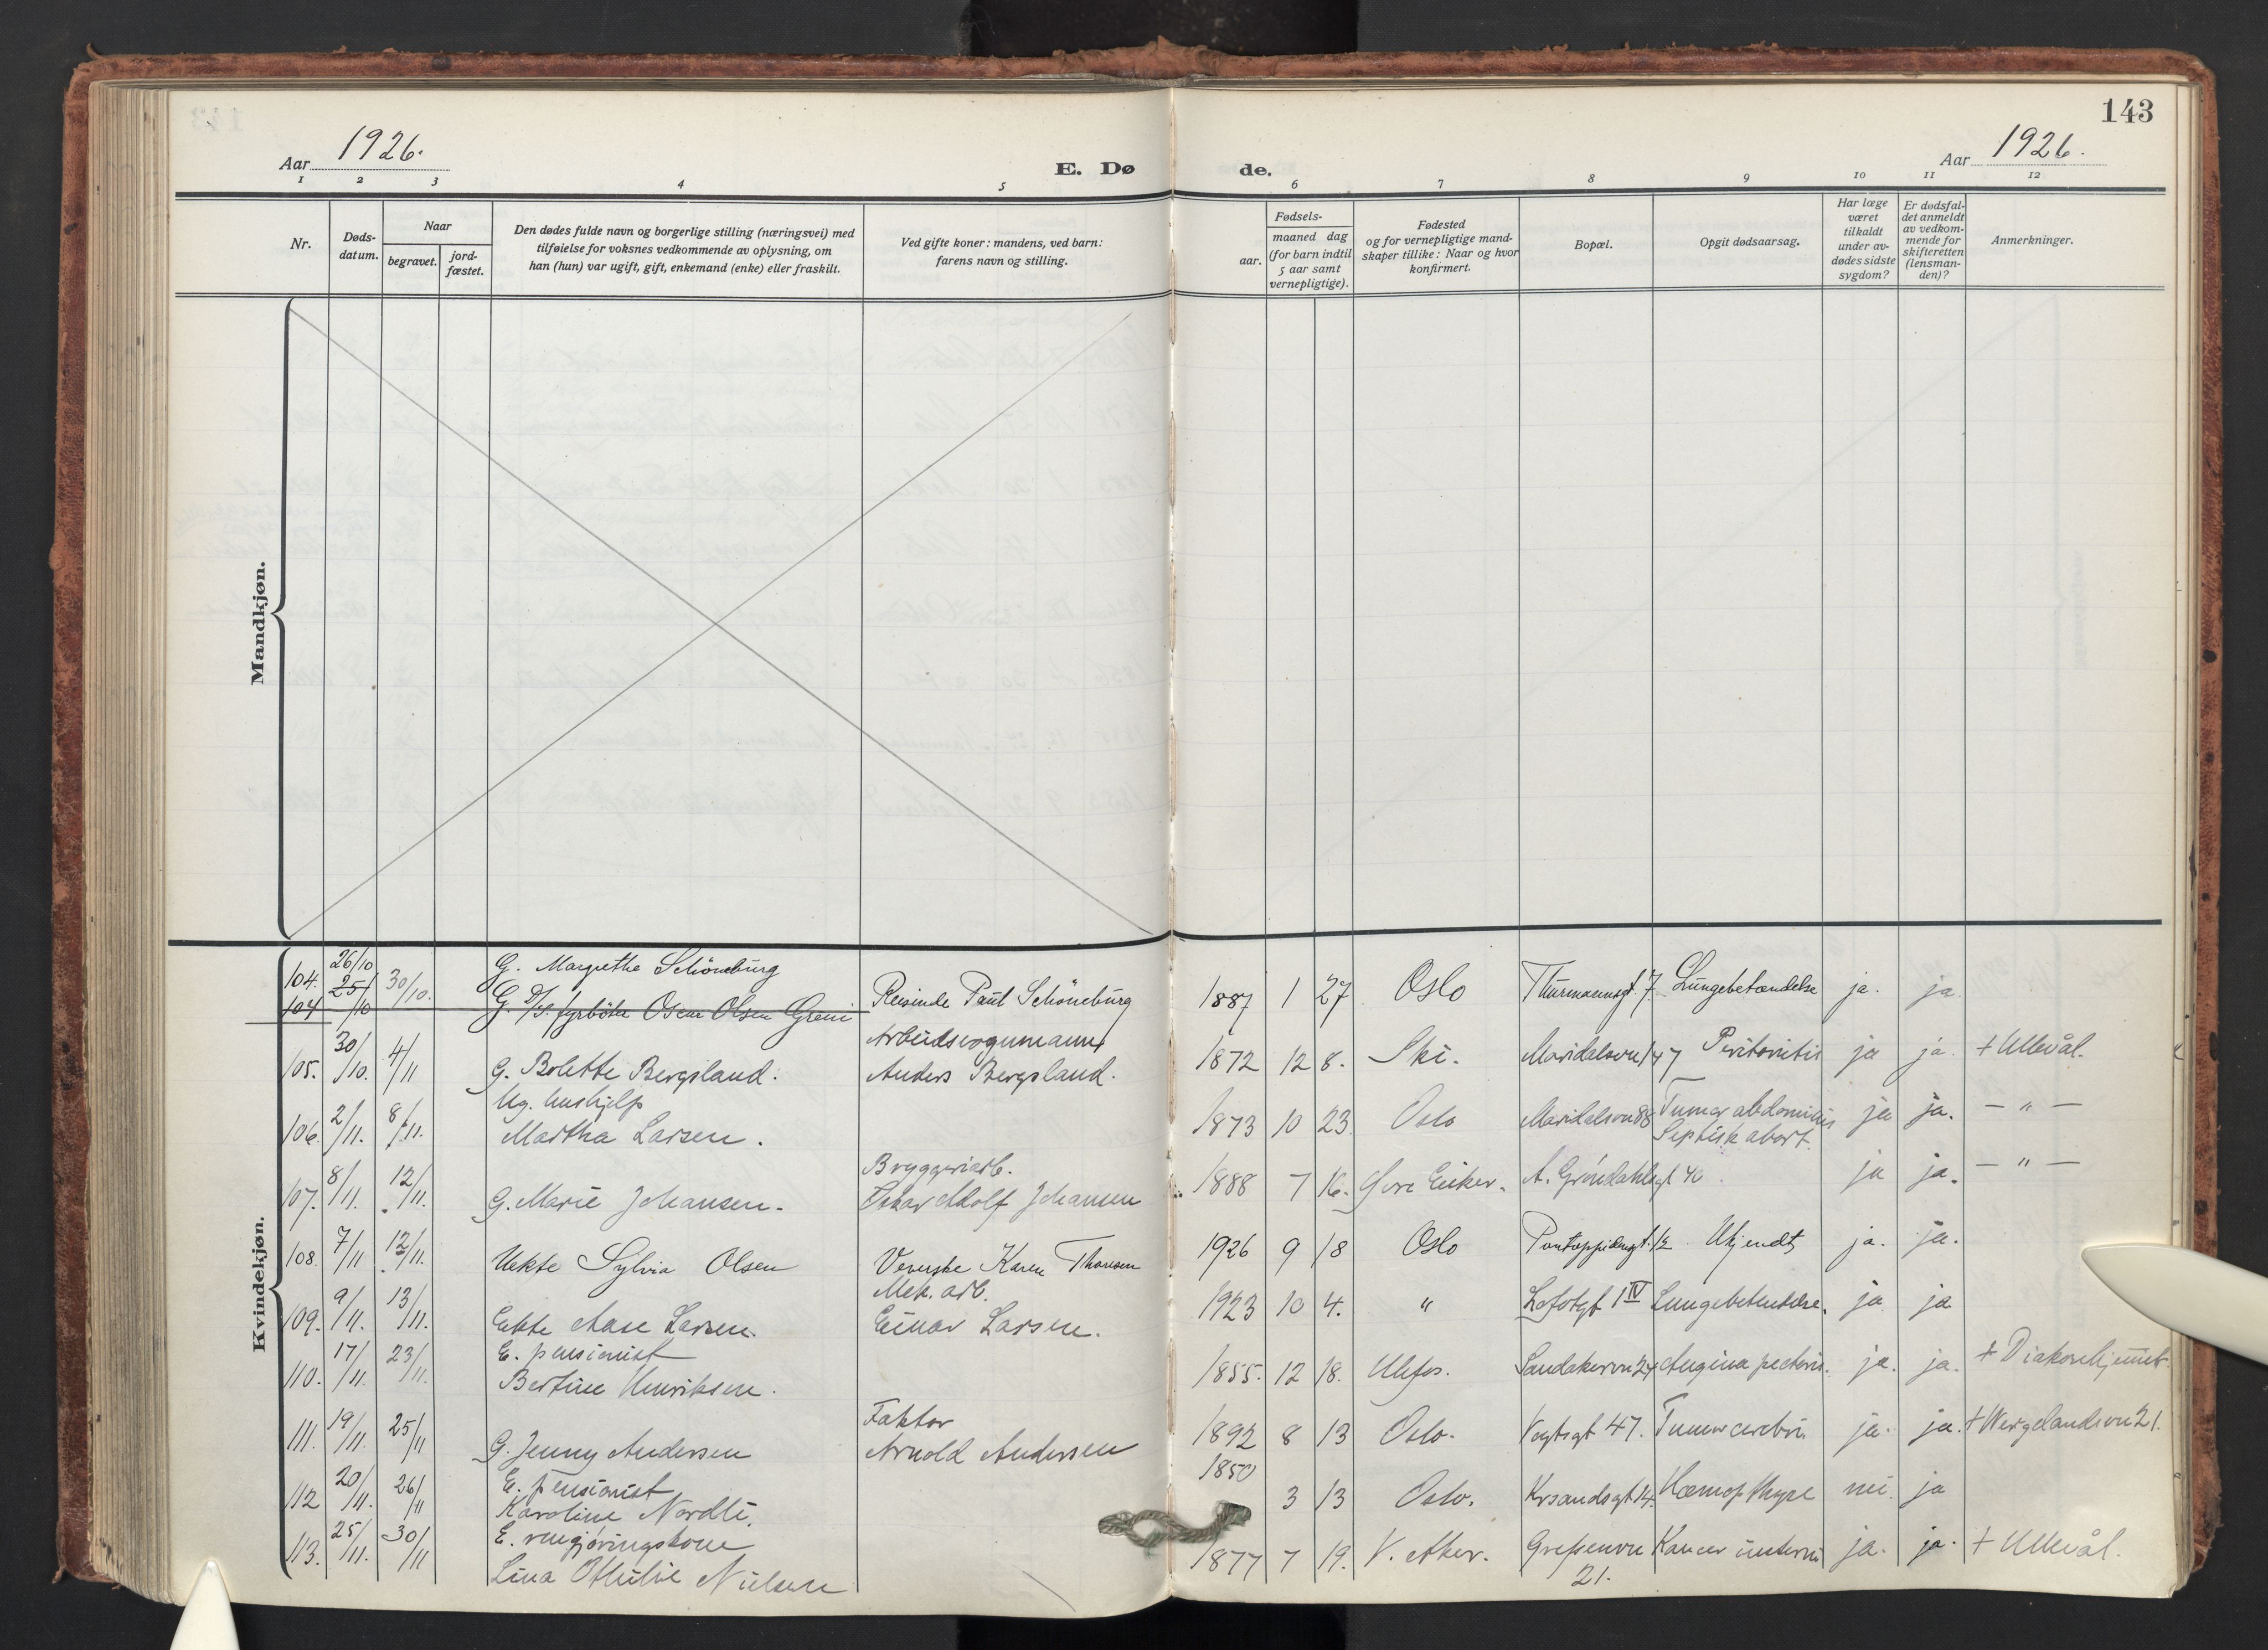 143
Aar 1926.
E. Dø de.
Aar 1926.
1 2 3 4 5 6 7 8 9 10 11 12
Nr.
Døds-
datum.
Naar
begravet.
jord-
fæstet.
Den dødes fulde navn og borgerlige stilling (næringsvei) med
tilføielse for voksnes vedkommende av oplysning, om
han (hun) var ugift, gift, enkemand (enke) eller fraskilt.
Ved gifte koner: mandens, ved barn:
farens navn og stilling.
Fødsels-
aar.
maaned dag
(for barn indtil
5 aar samt
vernepligtige).
Fødested
og for vernepligtige mand-
skaper tillike: Naar og hvor
konfirmert.
Bopæl.
Opgit dødsaarsag.
Har læge
været
tilkaldt
under av-
dødes sidste
sygdom?
Er dødsfal-
det anmeldt
av vedkom-
mende for
skifteretten
(lensman-
den)?
Anmerkninger.
Mandkjøn.
Kvindekjøn.
104. 26/10 30/10. G. Margrethe Schöneburg Reisende Paul Schöneburg 1887 1 27 Oslo Thurmannsgt. 7. Lungebetændelse ja. ja
104 25/10 G. fyrböter Olsen
Arbeidsvognmann
105. 30/10. 4/11 G. Bolette Bergsland. Anders Bergsland. 1872 12 8. Ski. Maridalsvn 147 Peritonitis ja ja + Ullevål.
Ug. hushjelp
106. 2/11. 8/11. Martha Larsen. 1873 10 23. Oslo Maridalsvn 88 Tumor abdominis ja ja. — " —
Septisk abort.
Bryggeriarb.
107. 8/11. 12/11. G. Marie Johansen. Oskar Adolf Johansen 1888 7 16. Øvre Eiker. A. Gröndahlsgt 40 ja ja. — " —
108. 7/11 12/11. Uekte Sylvia Olsen Veverske Karen Thoresen 1926 9 18 Oslo Pontoppidansgt. 12 Ukjendt ja. ja.
Mek. arb.
109. 9/11. 13/11. Ekte Aase Larsen. Einar Larsen. 1923 10 4. " Lofotgt 1 IV Lungebetendelse. ja ja
E. pensionist
110. 17/11. 23/11. Bertine Henriksen. 1855. 12 18. Ulefos. Sandakervn 24 Angina pectoris. ja. ja. + Diakonhjemmet.
Faktor
111. 19/11. 25/11 G. Jenny Andersen Arnold Andersen 1892 8 13 Oslo. Vogtsgt 47. Tumor cerebri ja. ja. + Wergelandsvn 21.
E. pensionist
112 20/11. 26/11 Karoline Nordli. 1850 3 13 Oslo. Krsandsgt 14. Hæmopthyse nei. ja
E. rengjøringskone
113. 25/11. 30/11 Lina Othilie Nielsen 1877 7 19. V. Aker. Grefsenvn Kancer uteri ja. ja. + Ullevål.
21.